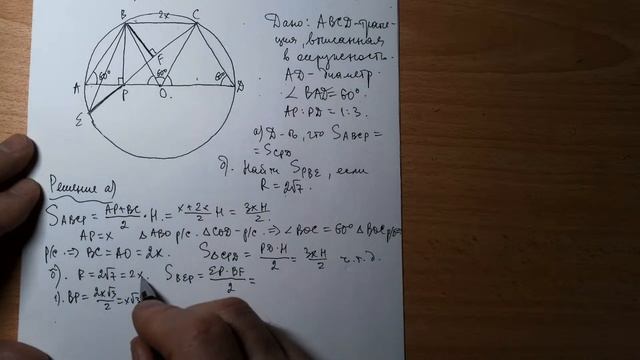 B 2x C
F
60° 60°
A P O D
E
Дано: ABCD-трапе-
ция, вписанная
в окружность.
AD - диаметр.
∠ BAD = 60°
AP:PD = 1:3.
а) Д-ть, что S_ABCP =
= S_CPD
б). Найти S_PBE, если
R = 2√7.
Решение а)
S_ABCP = (AP+BC)/2 · H = (x+2x)/2 H = 3xH/2.
AP = x △ABO р/с. △COD - р/с. ⇒ ∠BOC = 60° △BOC р/с
р/с. ⇒ BC = AO = 2x. S_△CPD = PD·H/2 = 3xH/2 ч.т.д.
б). R = 2√7 = 2x. S_BEP = EP·BF/2 =
1). BP = 2x√3/2 = x√3